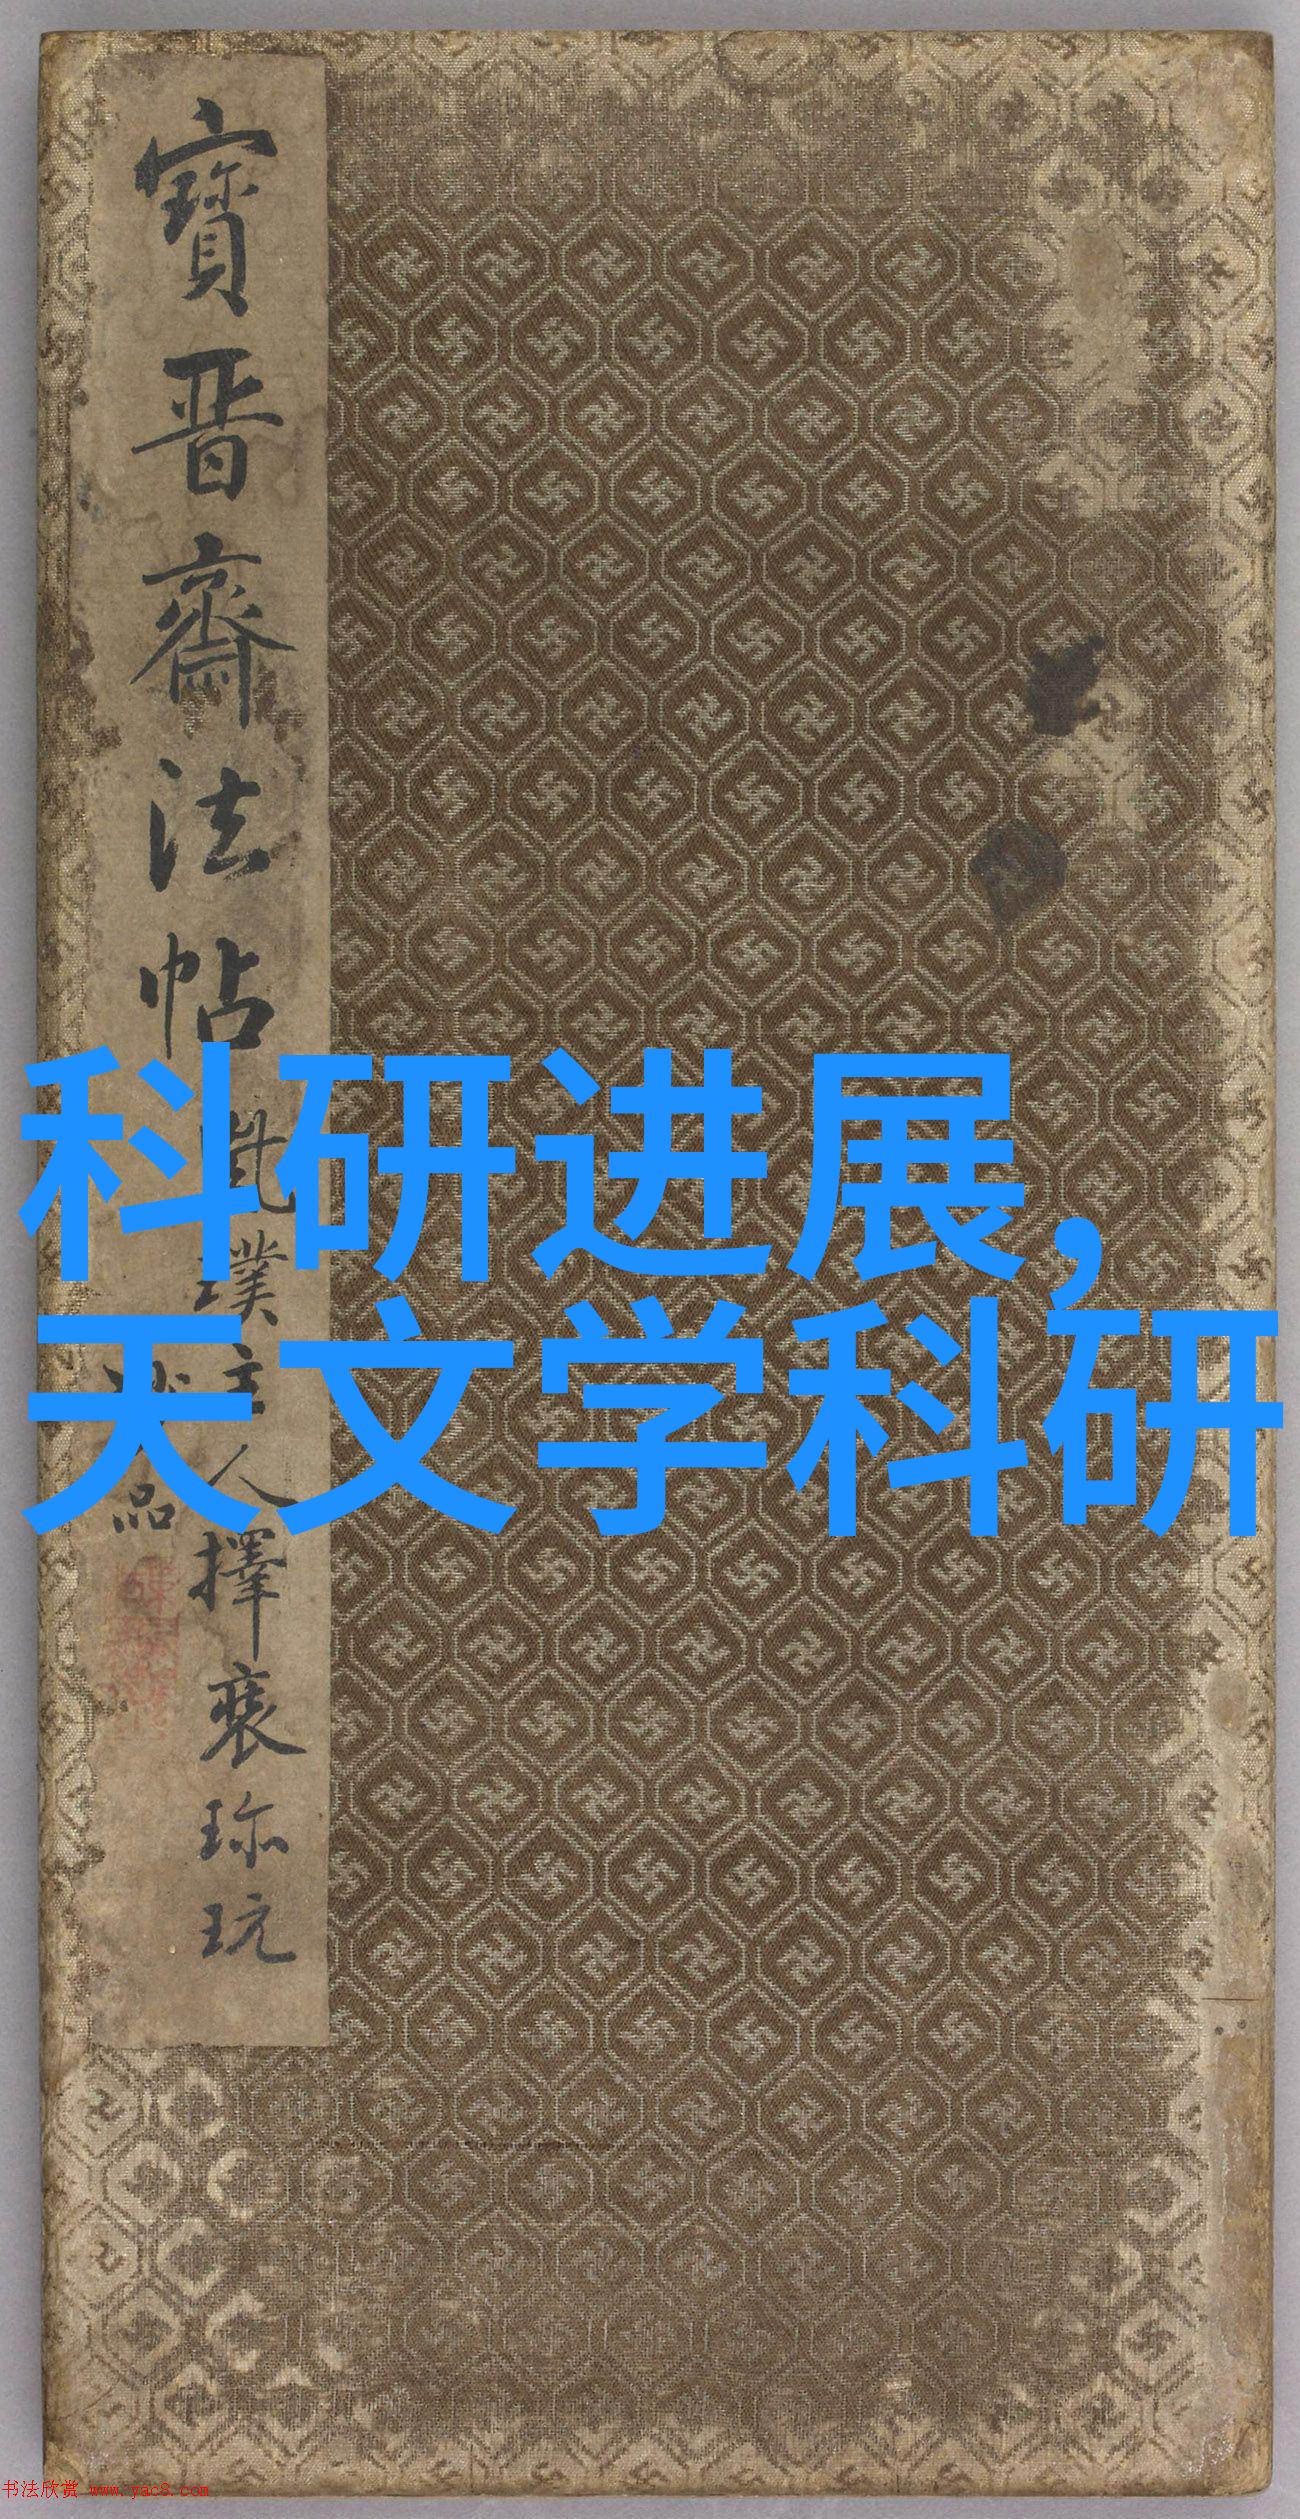 寶晉齋法帖
璞主人擇裘珎玩
品
科研进展,
天文学科研
书法欣赏 www.yac8.com